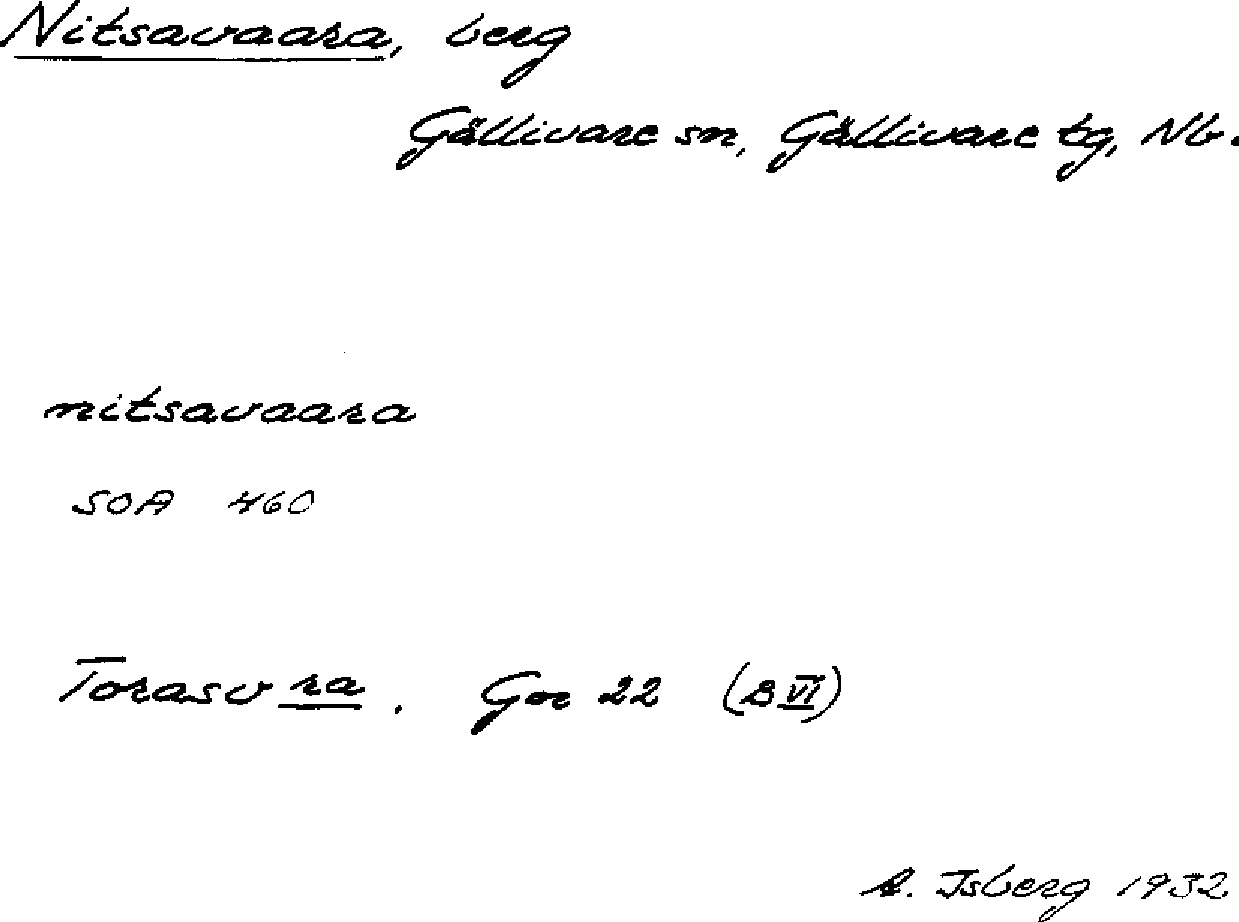 Nitsavaara, berg
Gällivare sn, Gällivare tg, Nb.
nitsavaara
SOA 460
Torasvra. Gor 22 (B VI)
A. Isberg 1932